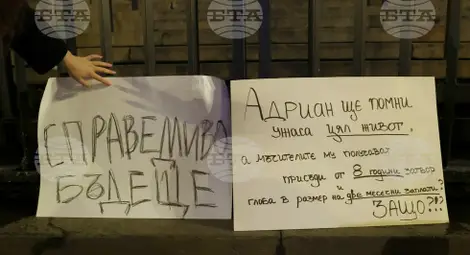 БТА
БТА
СПРАВЕДЛИВО
БЪДЕЩЕ
АДРИАН ЩЕ ПОМНИ
УЖАСА ЦЯЛ ЖИВОТ,
а мъчителите му получават
присъди от 8 години затвор
и
глоба в размер на две месечни заплати?
ЗАЩО?!?